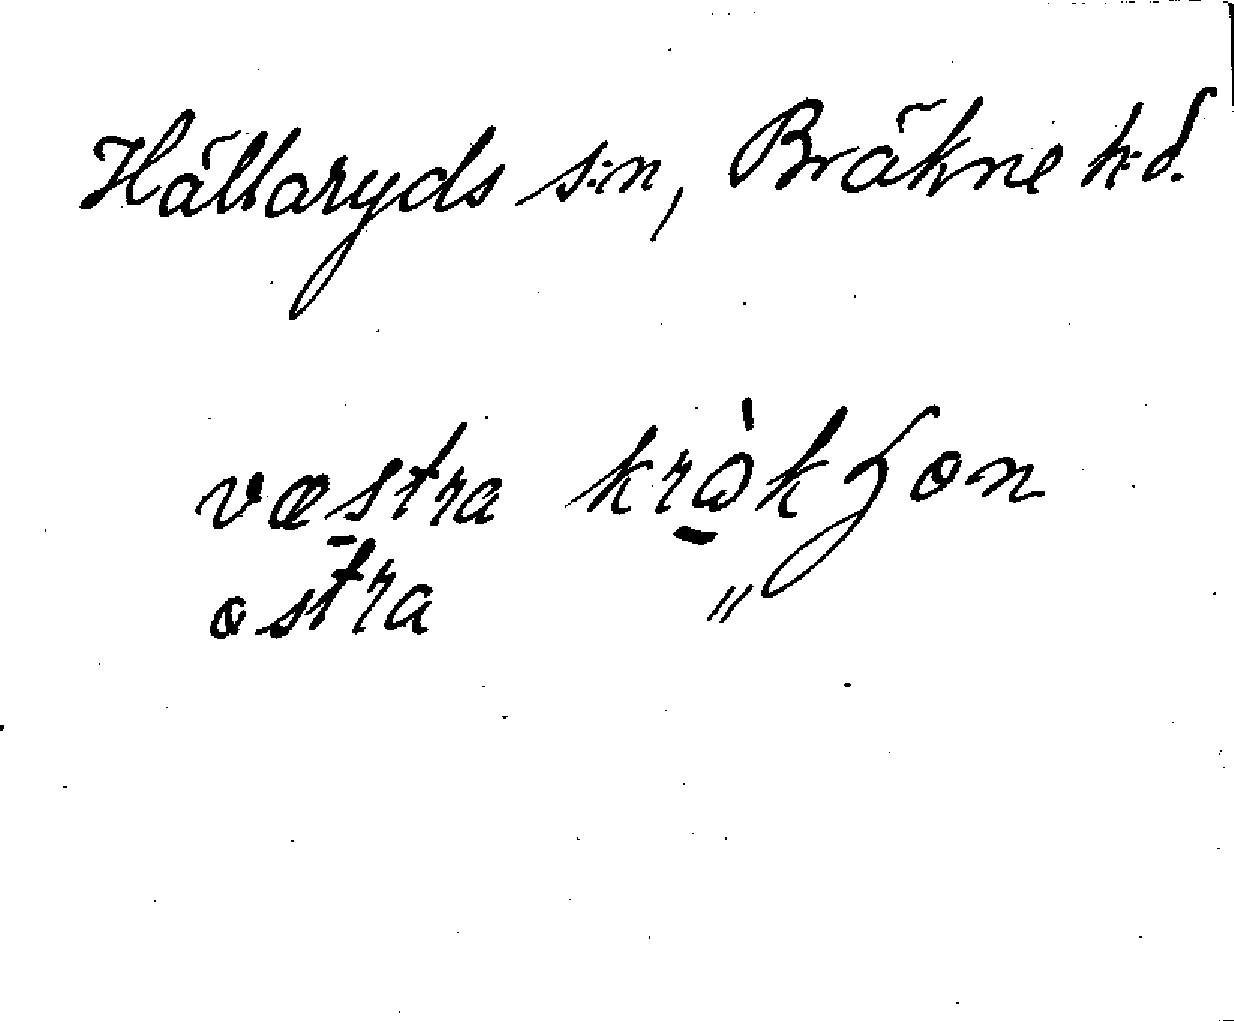 Hällaryds s:n, Bräkne h:d.
væstra kråkȝon
ostra "